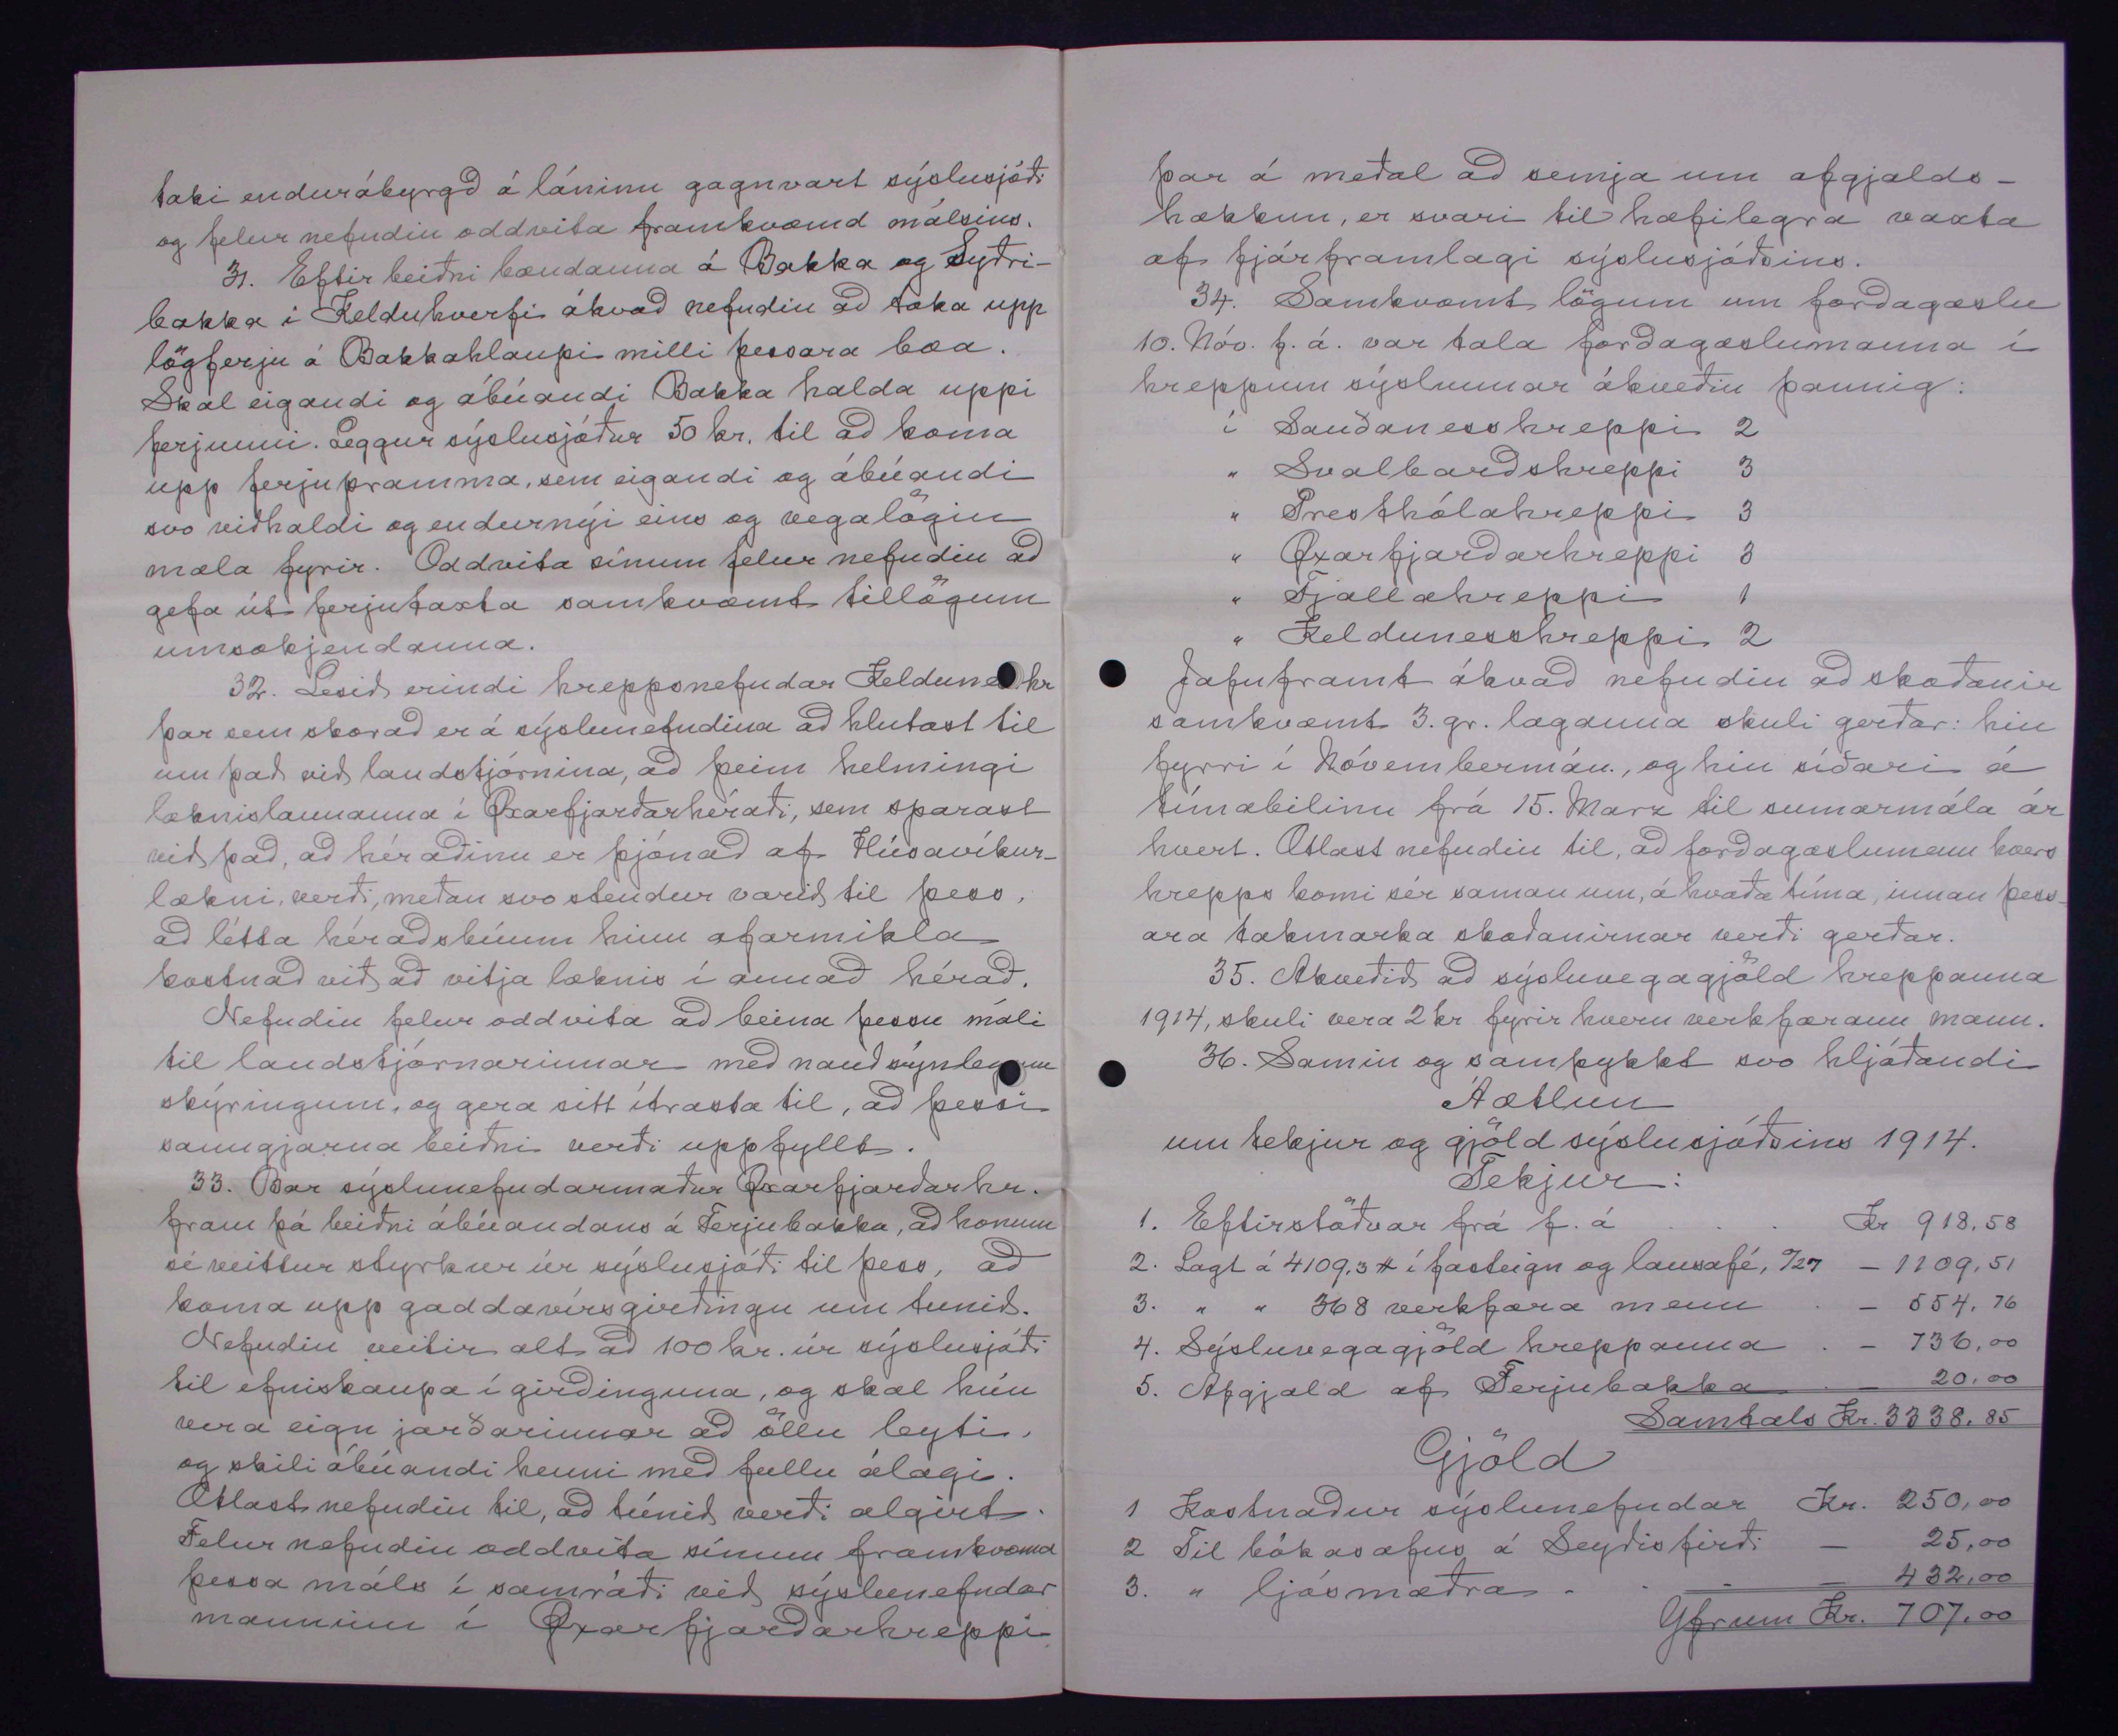 taki endurábyrgð á láninu gagnvart sýslusjóði
og felur nefndin oddvita framkvæmd málsins.
31. Eftir beiðni bændanna á Bakka og Syðri-
bakka í Kelduhverfi ákvað nefndin að taka upp
lögferju á Bakkahlaupi milli þessara bæa.
Skal eigandi og ábúandi Bakka halda uppi
ferjunni. Leggur sýslusjóður 50 kr. til að koma
upp ferjupramma, sem eigandi og ábúandi
svo viðhaldi og endurnýi eins og vegalögin
mæla fyrir. Oddvita sínum felur nefndin að
gefa út ferjutaxta samkvæmt tillögum
umsækjendanna.
32. Lesið erindi hreppsnefndar Keldunes hr
þar sem skorað er á sýslunefndina að hlutast til
um það við landstjórnina, að þeim helmingi
læknislaunanna í Øxarfjarðarhéraði, sem sparast
við það, að héraðinu er þjónað af Húsavíkur-
lækni, verði, meðan svo stendur varið til þess,
að létta héraðsbúum hinn afarmikla
kostnað við að vitja læknis í annað hérað.
Nefndin felur oddvita að beina þessu máli
til landstjórnarinnar með nauðsynlegum
skýringum, og gera sitt ítrasta til, að þessi
sanngjarna beiðni verði uppfyllt.
33. Bar sýslunefndarmaður Øxarfjarðarhr.
fram þá beiðni ábúandans á Ferjubakka, að honum
sé veittur styrkur úr sýslusjóði til þess, að
koma upp gaddavírsgirðingu um tunið.
Nefndin veitir alt að 100 kr. úr sýslusjóði
til efniskaupa í girðinguna, og skal hún
vera eign jarðarinnar að öllu leyti,
og skili ábúandi henni með fullu álagi.
Ætlast nefndin til, að túnið verði algirt.
Felur nefndin oddvita sínum framkvæmd
þessa máls í samráði við sýslunefndar
manninn í Øxarfjarðarhreppi
þar á meðal að semja um afgjalds-
hækkun, er svari til hæfilegra vaxta
af fjárframlagi sýslusjóðsins.
34. Samkvæmt lögum um forðagæslu
10. Nóv. f. á. var tala forðagæslumanna í
hreppum sýslunnar ákveðin þannig:
í Sauðaneshreppi 2
" Svalbarðshreppi 3
" Presthólahreppi 3
" Øxarfjarðarhreppi 3
" Fjallahreppi 1
" Kelduneshreppi 2
Jafnframt ákvað nefndin að skoðanir
samkvæmt 3. gr. laganna skuli gerðar: hin
fyrri í Nóvembermán., og hin síðari á
tímabilinu frá 15. Marz til sumarmála ár
hvert. Ætlast nefndin til, að forðagæslumenn hvers
hrepps komi sér saman um, á hvaða tíma, innan þess-
ara takmarka skoðanirnar verði gerðar.
35. Akveðið að sýsluvegagjöld hreppanna
1914, skuli vera 2 kr fyrir hvern verkfærann mann.
36. Samin og samþykkt svo hljóðandi
Áætlun
um tekjur og gjöld sýslusjóðsins 1914.
Tekjur:
1. Eftirstöðvar frá f. á . . . Kr 918,58
2. Lagt á 4109,3 # í fasteign og lausafé, /27 - 1109,51
3. " " 368 verkfæra menn . - 554,76
4. Sýsluvegagjöld hreppanna . - 736,00
5. Afgjald af Ferjubakka . - 20,00
Samtals Kr. 3338,85
Gjöld
1 Kostnaður sýslunefndar Kr. 250,00
2 Til bókasafns á Seyðisfirði - 25,00
3. " ljósmæðra . . . - 432,00
Yfrum Kr. 707,00